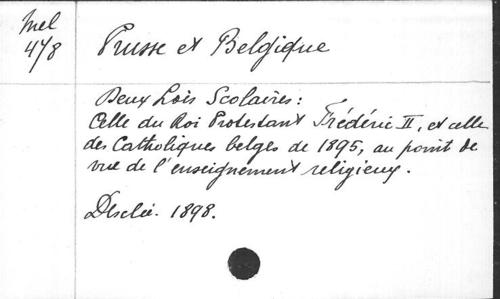 Mel
4/8
Prusse et Belgique
Deux Lois Scolaires:
Celle du Roi Protestant Frédéric II, et celle
des Catholiques belges de 1895, au point de
vue de l'enseignement religieux.
Desclée. 1898.